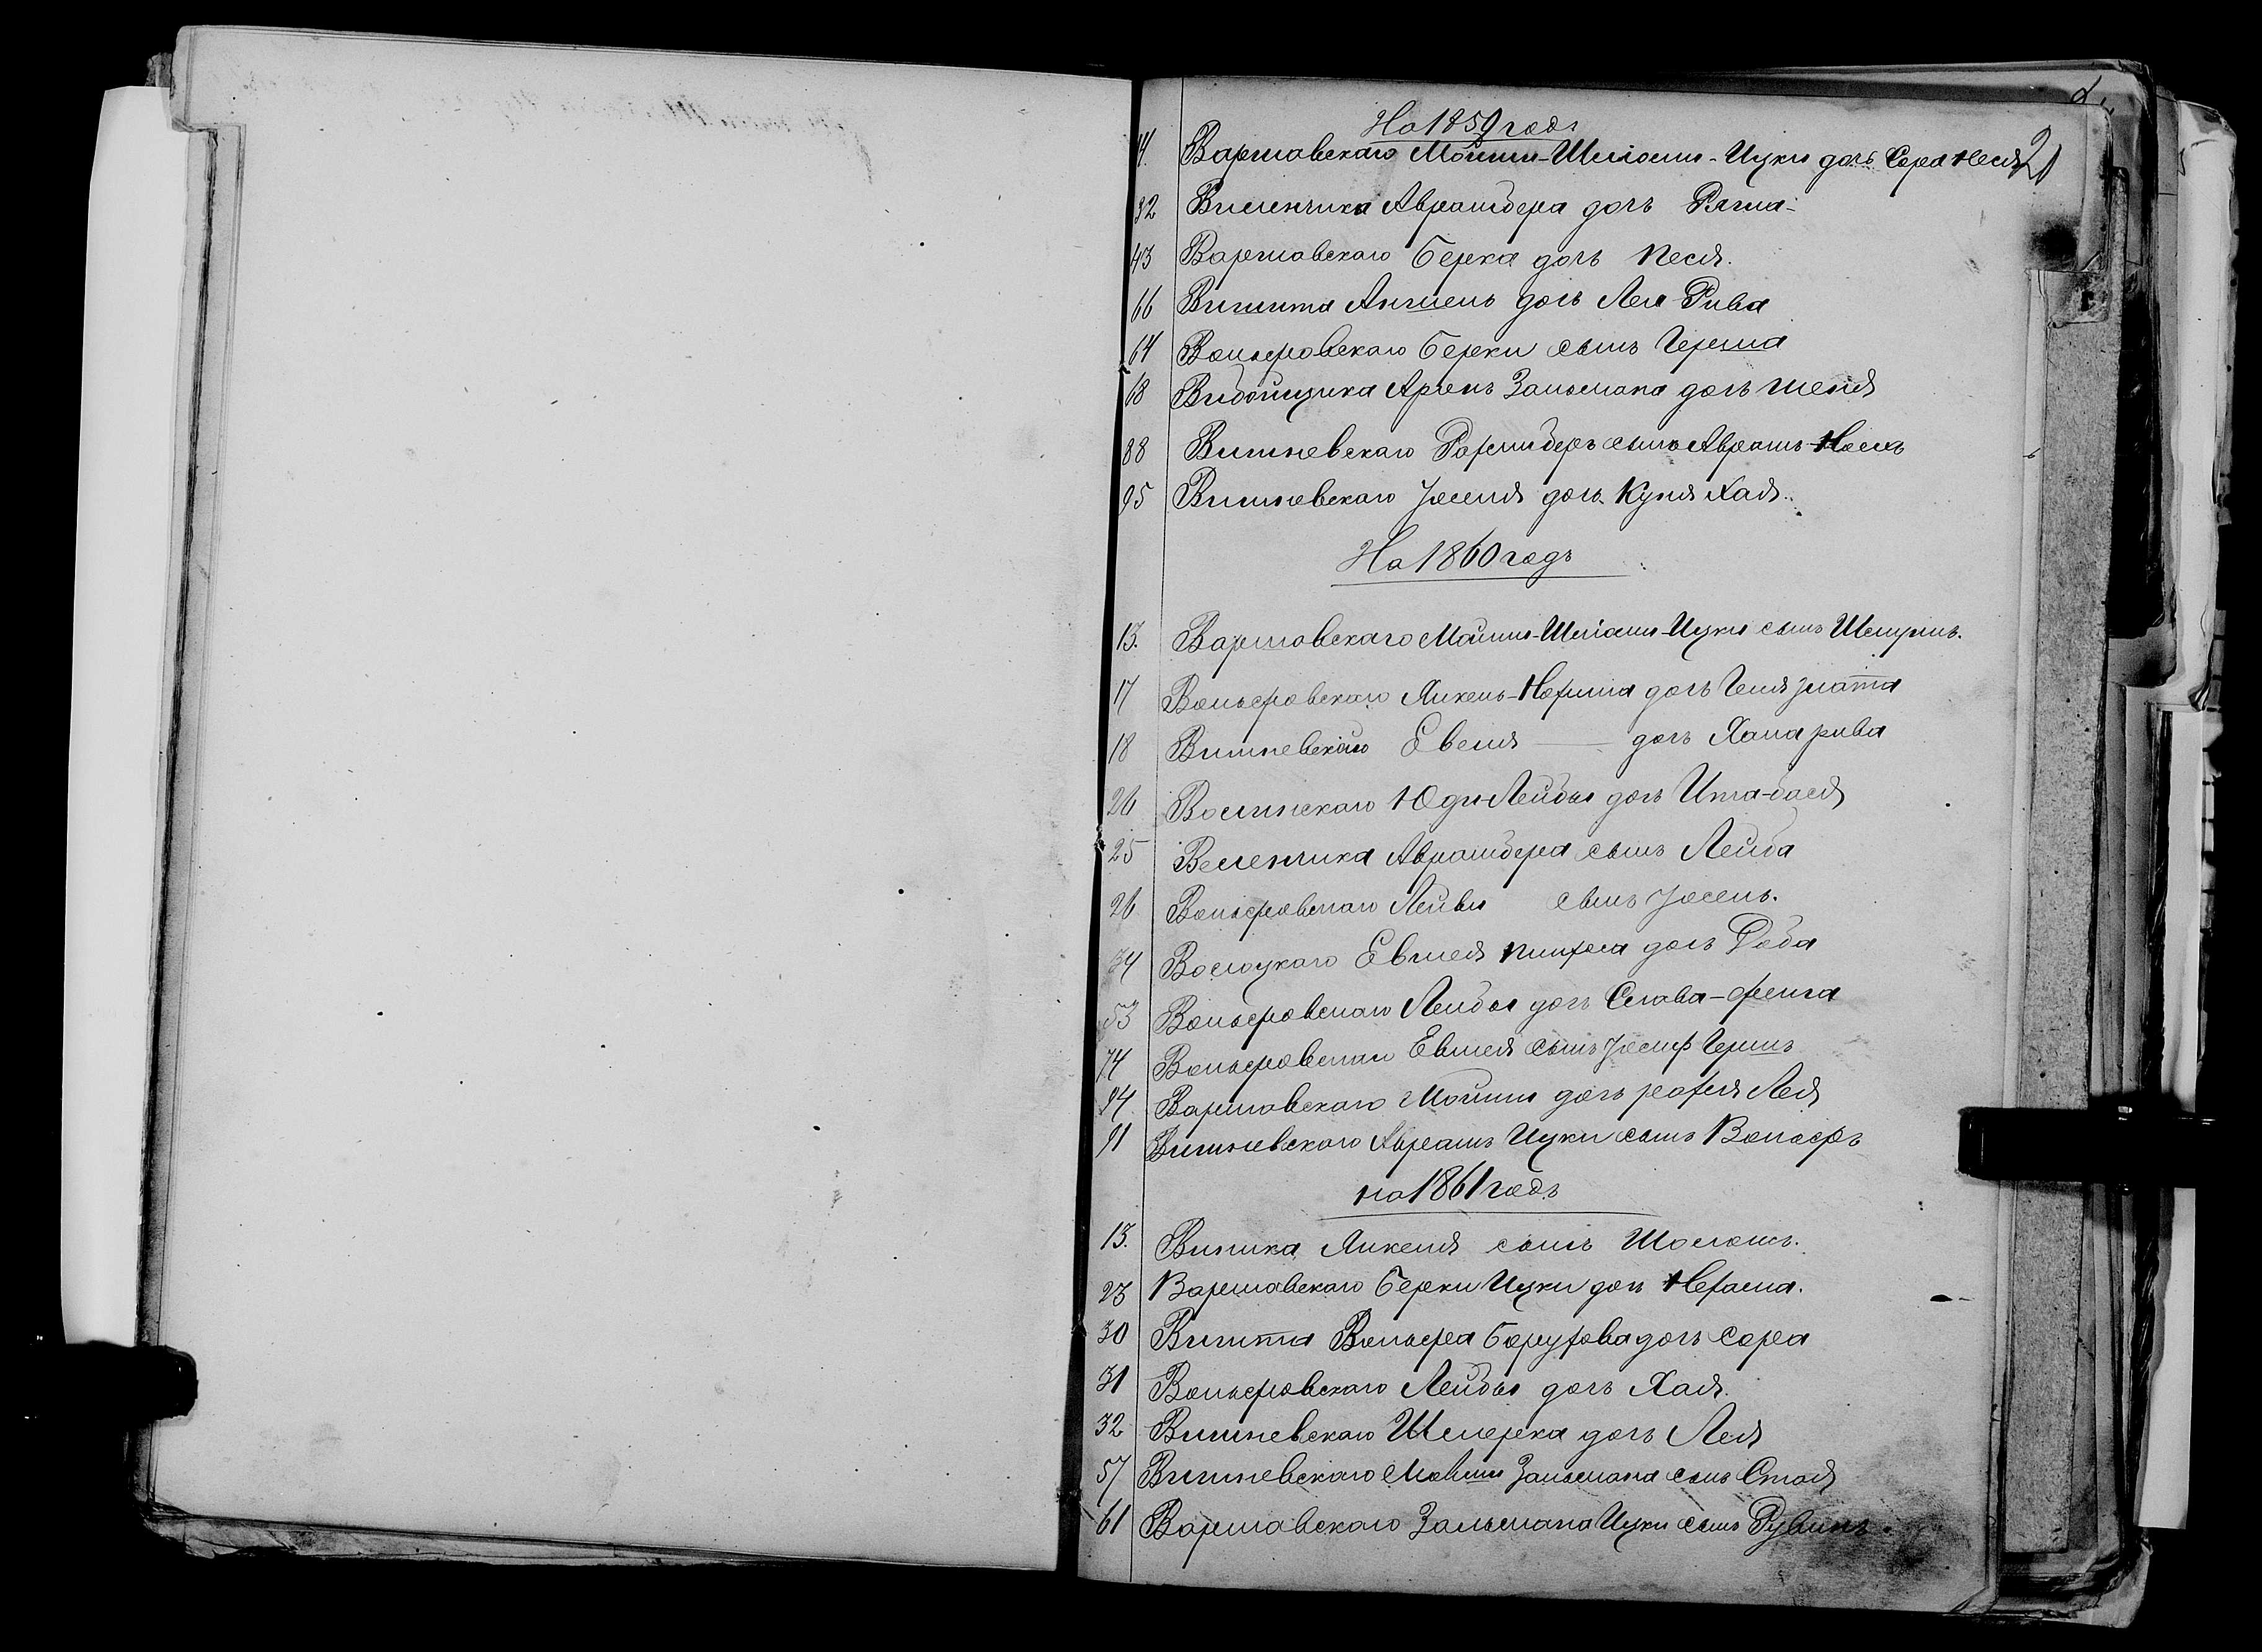 На 1859 годъ
14. Варшавскаго Мойши-Шліоми-Ицки дочь Сора Неся 21
32 Виленчика Аврамбера дочь
43 Варшавскаго Берка дочь Песя.
66 Дочь Лея Рива
64 Вольфовскаго Берки сынъ Герша
68 Аронъ Зальмана дочь Шейня
88 Вишневскаго сынъ Аврамъ-
95 Вишневскаго Іоселя дочь Куня Хая.
На 1860 годъ
13. Варшавскаго Мойши-Шліоми-Ицки сынъ
17 Вольфовскаго Янкель- дочь Геня Златта
18 Вишневскаго Евеля — дочь Хана рива
26 Волинскаго Юди-Лейбы дочь Ита-бася
25 Веленчика Аврамбера сынъ Лейба
26 Вольфовскаго Лейбы сынъ Іосель.
34 Волоцкаго Евшея дочь Доба
53 Вольфовскаго Лейбы дочь Слава-фейга
74 Вольфовскаго Евшея сынъ Іосиф Гершъ
84 Варшавскаго Мойши дочь рохля Лея
91 Вишневскаго Аврамъ Ицки сынъ Вольфъ
на 1861 годъ
13. Виника Янкеля сынъ Шоломъ.
23 Варшавскаго Берки Ицки дочь Нехама.
30 Вольфа Борухова дочь Сора
31 Вольфовскаго Лейбы дочь Хая.
32 Вишневскаго Шмерка дочь Лея
57 Вишневскаго Мовши Зальмана сынъ
61 Варшавскаго Зальмана Ицки сынъ Рувинъ.